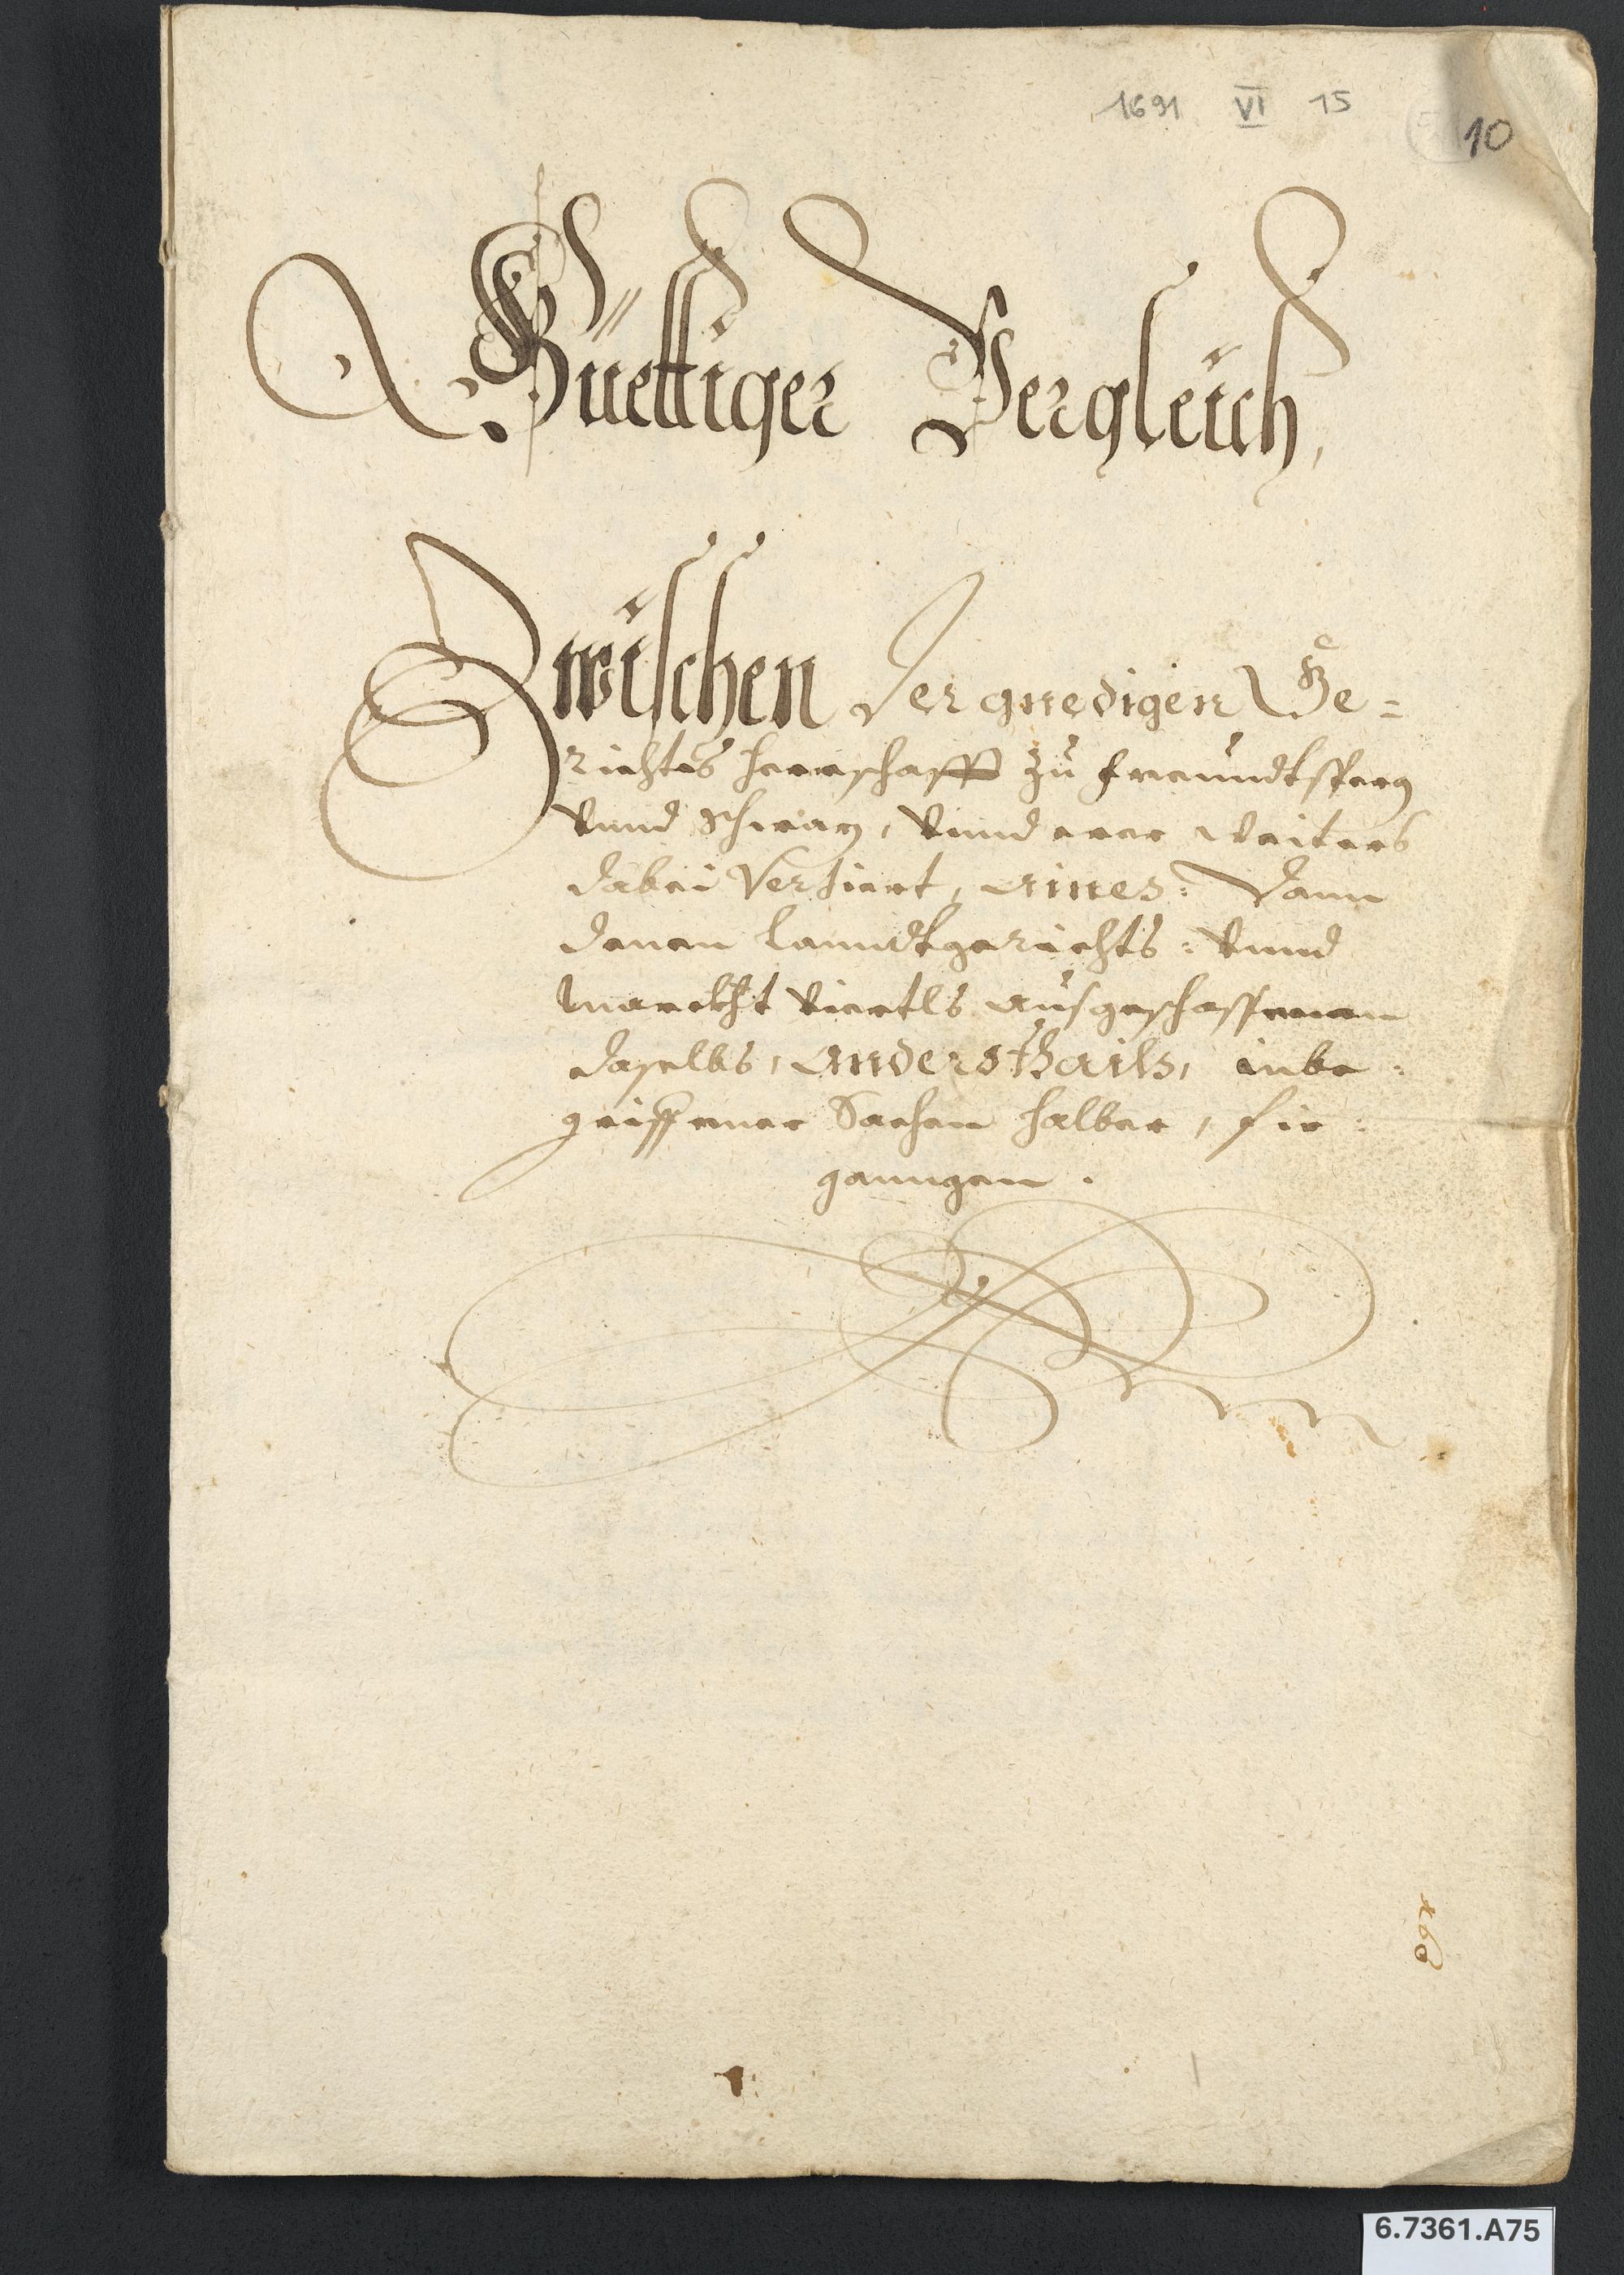 1691 VI 15
10
Güettiger Vergleich,
Zwischen Der gnedigen Ge=
richts herrschafft zu Freundtsperg
vnnd Schwaz, vnnd wer weiters
dabei Versiert, aines: Dann
denen Lanndtgerichts: vnnd
Marckht Viertls ausgeschossenen
daselbs, anders thails, inbe:
griffener Sachen halber, fir:
ganngen.
6.7361.A75